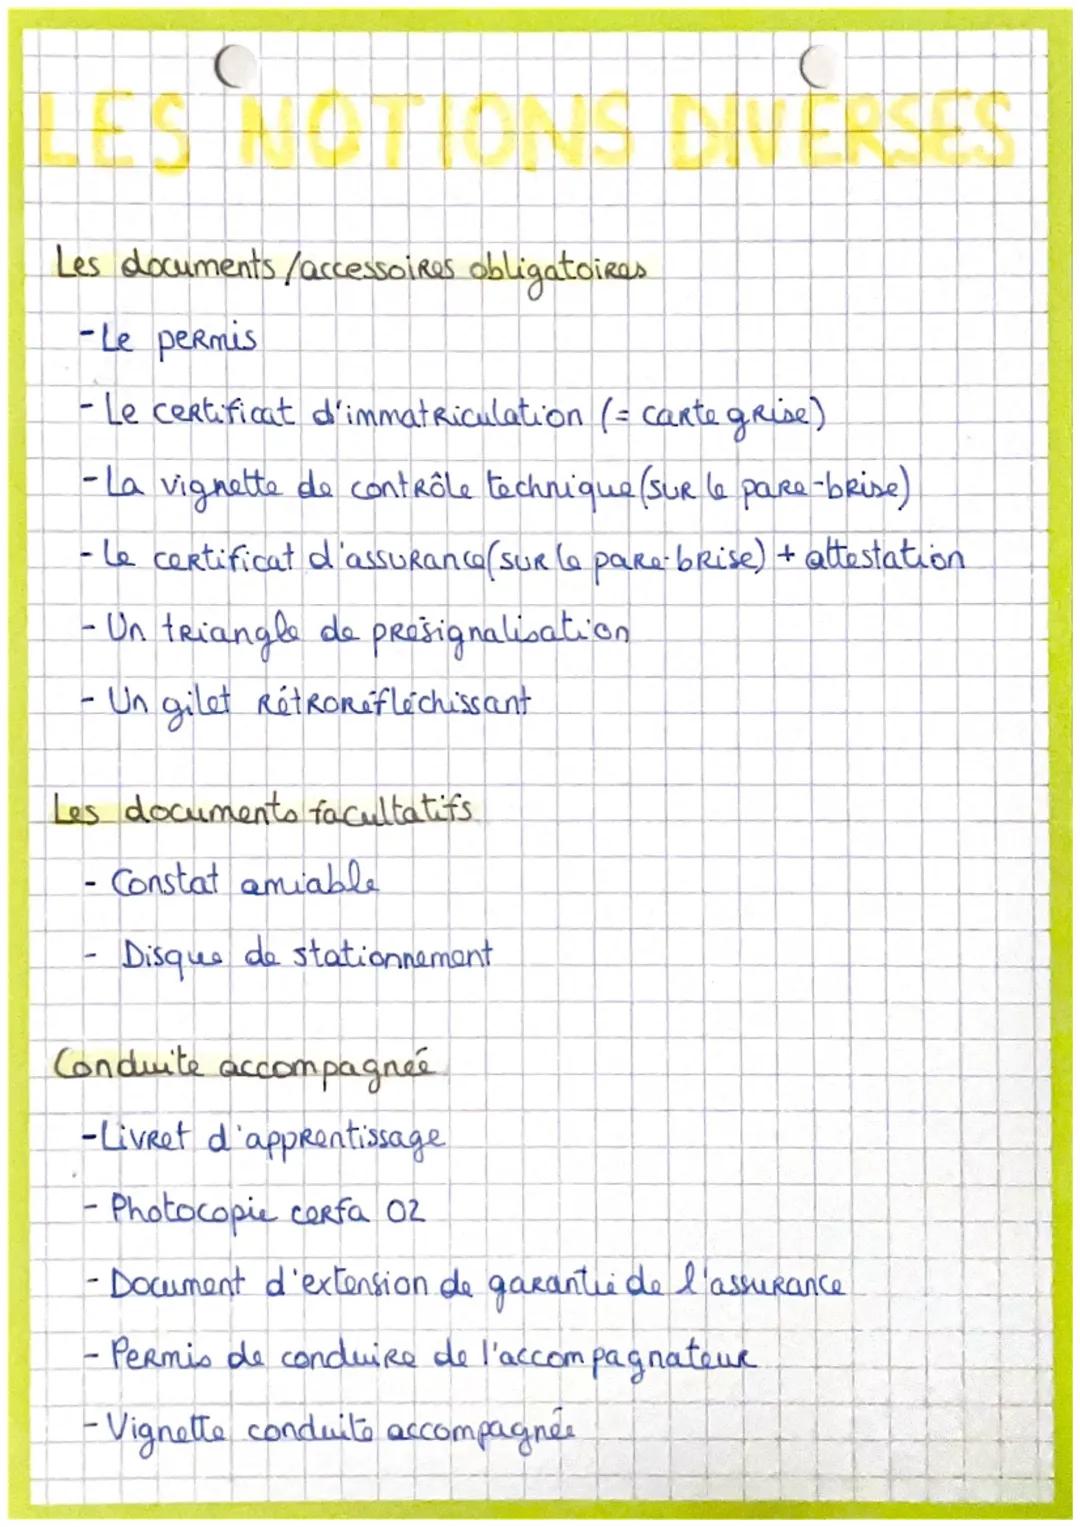 LES NOTIONS DIVERSES
Les documents/accessoires obligatoires
-Le permis
- Le certificat d'immatriculation (= carte grise)
- La vignette de contrôle technique (sur le pare-brise)
- Le certificat d'assurance (sur le pare-brise) + attestation
- Un triangle de présignalisation
- Un gilet rétroréfléchissant
Les documents facultatifs
- Constat amiable
- Disque de stationnement
Conduite accompagnée
-Livret d'apprentissage
- Photocopie cerfa 02
- Document d'extension de garantie de l'assurance
- Permis de conduire de l'accompagnateur
- Vignette conduite accompagnée